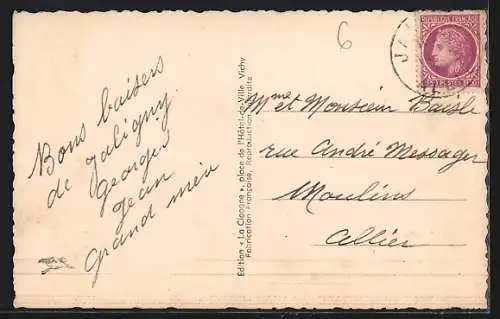 6
JA
RÉPUBLIQUE FRANÇAISE
POSTES
Bons baisers
de Jaligny
Georges
Jean
Grand mère
Edition « La Cigogne », place de l'Hôtel-de-Ville, Vichy
Fabrication Française, Reproduction interdite
Mme et Monsieur
rue André Messager
Moulins
Allier